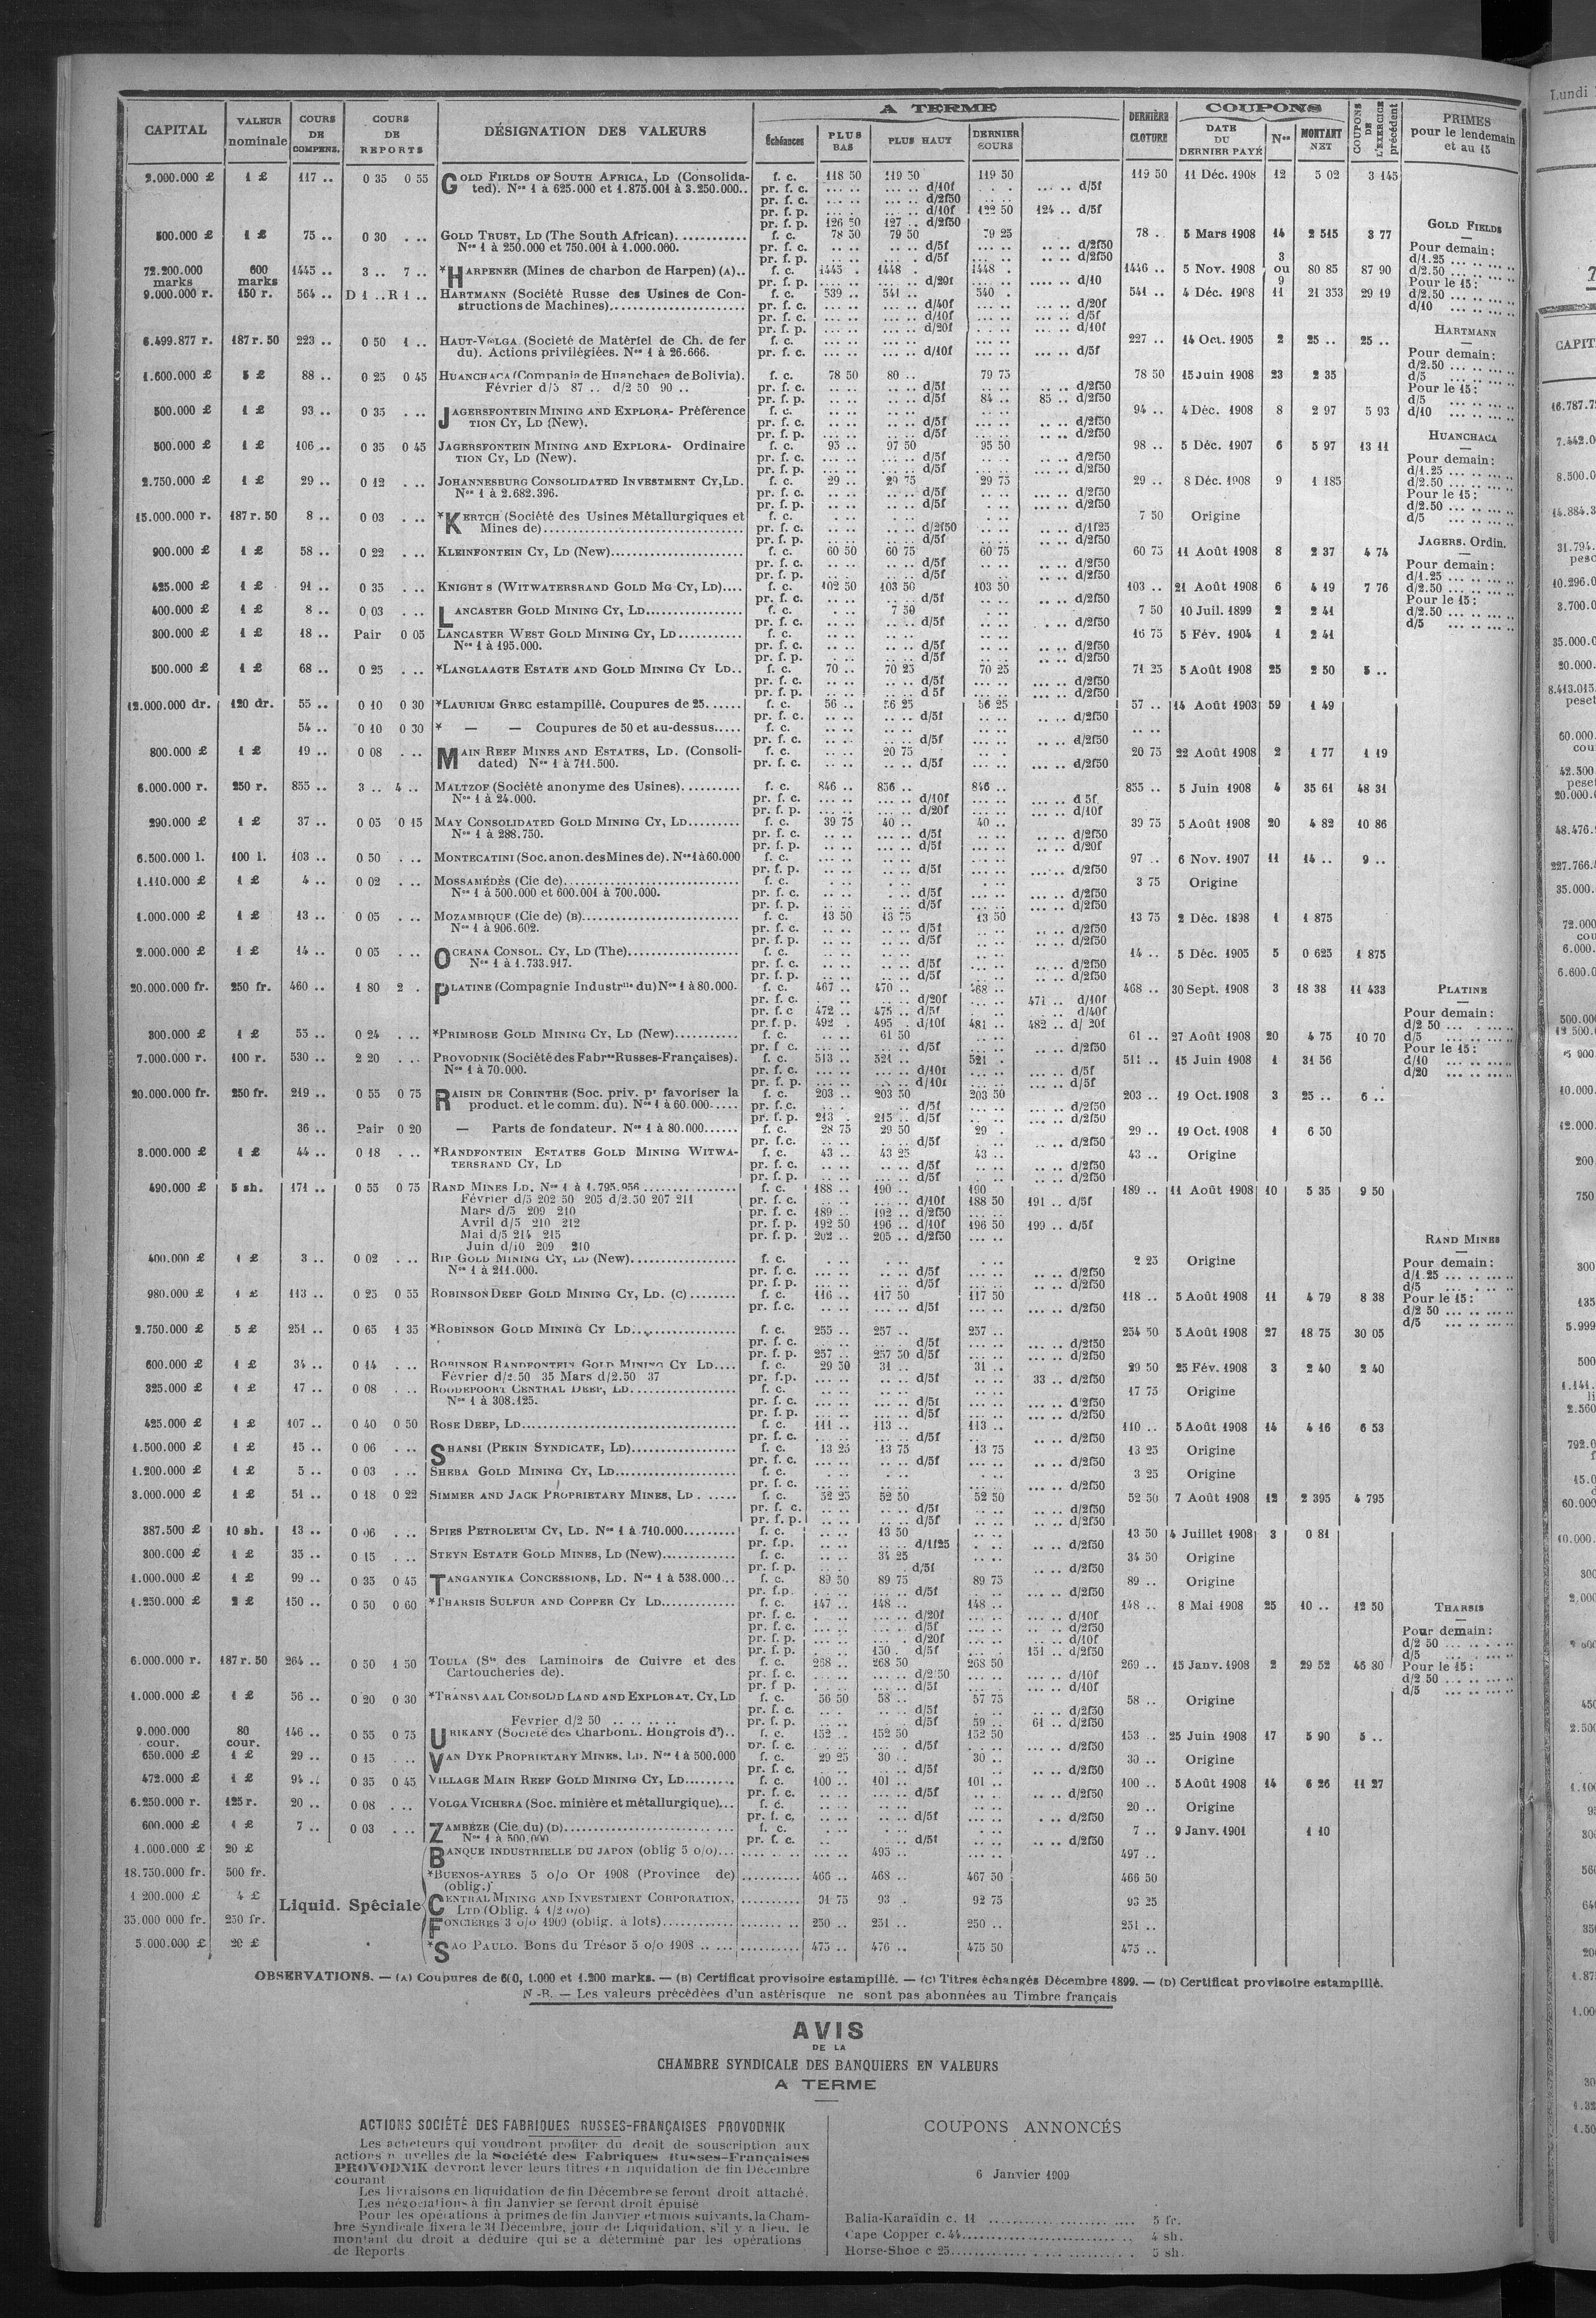 CAPITAL VALEUR nominale COURS DE COMPENS. COURS DE REPORTS DÉSIGNATION DES VALEURS A TERME Échéances PLUS BAS PLUS HAUT DERNIER COURS DERNIÈRE CLOTURE COUPONS DATE DU DERNIER PAYÉ Nos MONTANT NET COUPONS DE L'EXERCICE précédent PRIMES pour le lendemain et au 15
2.000.000 £ 1 £ 117 .. 0 35 0 55 GOLD FIELDS OF SOUTH AFRICA, LD (Consolida- f. c. 118 50 119 50 119 50 119 50 11 Déc. 1908 12 5 02 3 145
ted). Nos 1 à 625.000 et 1.875.001 à 3.250.000.. pr. f. c. ... .. ... .. d/10f ... .. d/5f
pr. f. c. ... .. ... .. d/2f50
pr. f. p. ... .. d/10f 122 50 124 .. d/5f
pr. f. p. 126 50 127 .. d/2f50
500.000 £ 1 £ 75 .. 0 30 . .. GOLD TRUST, LD (The South African)........... f. c. 78 50 79 50 79 25 78 . 5 Mars 1908 14 2 515 3 77
Nos 1 à 250.000 et 750.001 à 1.000.000. pr. f. c. .. .. .. .. d/5f .. .. d/2f50
pr. f. p. .. .. d/5f .. .. d/2f50
72.200.000 marks 600 marks 1445 .. 3 .. 7 .. *HARPENER (Mines de charbon de Harpen) (A).. f. c. 1445 . 1448 . 1448 . 1446 .. 5 Nov. 1908 3 ou 9 80 85 87 90
pr. f. p. .... .. d/20f .... .. d/10
9.000.000 r. 150 r. 564 .. D 1 .. R 1 .. HARTMANN (Société Russe des Usines de Con- f. c. 539 .. 541 .. 540 . 541 .. 4 Déc. 1908 11 21 353 29 19
structions de Machines)..................... pr. f. c. ... .. d/40f ... .. d/20f
pr. f. c. ... .. d/10f ... .. d/5f
pr. f. p. ... .. d/20f ... .. d/10f
6.499.877 r. 187 r. 50 223 .. 0 50 1 .. HAUT-VOLGA (Société de Matériel de Ch. de fer f. c. 227 .. 14 Oct. 1905 2 25 .. 25 ..
du). Actions privilégiées. Nos 1 à 26.666. pr. f. c. ... .. d/10f ... .. d/5f
1.600.000 £ 5 £ 88 .. 0 25 0 45 HUANCHACA (Compania de Huanchaca de Bolivia). f. c. 78 50 80 .. 79 75 78 50 15 Juin 1908 23 2 35
Février d/5 87 .. d/2 50 90 .. pr. f. c. .. .. d/5f .. .. d/2f50
pr. f. p. .. .. d/5f 84 .. 85 .. d/2f50
500.000 £ 1 £ 93 .. 0 35 . .. JAGERSFONTEIN MINING AND EXPLORA- Préférence f. c. 94 .. 4 Déc. 1908 8 2 97 5 93
TION CY, LD (New). pr. f. c. .. .. d/5f .. .. d/2f50
pr. f. p. .. .. d/5f .. .. d/2f50
500.000 £ 1 £ 106 .. 0 35 0 45 JAGERSFONTEIN MINING AND EXPLORA- Ordinaire f. c. 95 .. 97 50 95 50 98 .. 5 Déc. 1907 6 5 97 13 11
TION CY, LD (New). pr. f. c. .. .. d/5f ... .. d/2f50
pr. f. p. .. .. d/5f ... .. d/2f50
2.750.000 £ 1 £ 29 .. 0 12 . .. JOHANNESBURG CONSOLIDATED INVESTMENT CY, LD. f. c. 29 .. 29 75 29 75 29 .. 8 Déc. 1908 9 1 185
Nos 1 à 2.682.396. pr. f. c. .. .. d/5f ... .. d/2f50
pr. f. p. .. .. d/5f ... .. d/2f50
15.000.000 r. 187 r. 50 8 .. 0 03 . .. *KERTCH (Société des Usines Métallurgiques et f. c. 7 50 Origine
Mines de)............................... pr. f. c. ... .. d/2f50 ... .. d/1f25
pr. f. p. .. .. d/5f .. .. d/2f50
900.000 £ 1 £ 58 .. 0 22 . .. KLEINFONTEIN CY, LD (New)...................... f. c. 60 50 60 75 60 75 60 75 11 Août 1908 8 2 37 4 74
pr. f. c. .. .. d/5f .. .. d/2f50
pr. f. p. .. .. d/5f .. .. d/2f50
425.000 £ 1 £ 91 .. 0 35 . .. KNIGHT S (WITWATERSRAND GOLD MG CY, LD).... f. c. 102 50 103 50 103 50 103 .. 21 Août 1908 6 4 19 7 76
pr. f. c. .. .. d/5f ... .. d/2f50
400.000 £ 1 £ 8 .. 0 03 . .. LANCASTER GOLD MINING CY, LD................ f. c. 7 50 7 50 10 Juil. 1899 2 2 41
pr. f. c. .. .. d/5f . .. d/2f50
300.000 £ 1 £ 18 .. Pair 0 05 LANCASTER WEST GOLD MINING CY, LD........... f. c. 16 75 5 Fév. 1904 1 2 41
Nos 1 à 195.000. pr. f. c. .. .. d/5f .. .. d/2f50
pr. f. p. .. .. d/5f .. .. d/2f50
500.000 £ 1 £ 68 .. 0 25 . .. *LANGLAAGTE ESTATE AND GOLD MINING CY LD.. f. c. 70 .. 70 25 70 25 71 25 5 Août 1908 25 2 50 5 ..
pr. f. c. .. .. d/5f ... .. d/2f50
pr. f. p. .. .. d 5f ... .. d/2f50
12.000.000 dr. 120 dr. 55 .. 0 10 0 30 *LAURIUM GREC estampillé. Coupures de 25...... f. c. 56 .. 56 25 56 25 57 .. 14 Août 1903 59 1 49
pr. f. c. .. .. d/5f .. .. d/2f50
54 .. 0 10 0 30 * — — Coupures de 50 et au-dessus..... f. c. .. ..
pr. f. c. .. .. d/5f .. .. d/2f50
800.000 £ 1 £ 19 .. 0 08 . .. MAIN REEF MINES AND ESTATES, LD. (Consoli- f. c. 20 75 20 75 22 Août 1908 2 1 77 1 19
dated) Nos 1 à 711.500. pr. f. c. .. .. d/5f ... .. d/2f50
6.000.000 r. 250 r. 855 .. 3 .. 4 .. MALTZOF (Société anonyme des Usines).......... f. c. 846 .. 856 .. 846 .. 855 .. 5 Juin 1908 4 35 61 48 31
Nos 1 à 24.000. pr. f. c. ... .. d/10f ... .. d 5f
pr. f. p. ... .. d/20f ... .. d/10f
290.000 £ 1 £ 37 .. 0 05 0 15 MAY CONSOLIDATED GOLD MINING CY, LD......... f. c. 39 75 40 .. 40 .. 39 75 5 Août 1908 20 4 82 10 86
Nos 1 à 288.750. pr. f. c. ... .. d/5f .. .. d/2f50
pr. f. p. .. .. d/5f .. .. d/20f
6.500.000 l. 100 l. 103 .. 0 50 . .. MONTECATINI (Soc. anon. des Mines de). Nos 1 à 60.000 f. c. 97 .. 6 Nov. 1907 11 14 .. 9 ..
pr. f. p. .. .. d/5f ... .. d/2f50
1.110.000 £ 1 £ 4 .. 0 02 . .. MOSSAMÉDÈS (Cie de)............................. f. c. 3 75 Origine
Nos 1 à 500.000 et 600.001 à 700.000. pr. f. c. . .. d/5f ... .. d/2f50
pr. f. p. .. .. d/5f ... .. d/2f50
1.000.000 £ 1 £ 13 .. 0 05 . .. MOZAMBIQUE (Cie de) (B).......................... f. c. 13 50 13 75 13 50 13 75 2 Déc. 1898 1 1 875
Nos 1 à 906.602. pr. f. c. .. .. d/5f ... .. d/2f50
pr. f. p. .. .. d/5f ... .. d/2f50
2.000.000 £ 1 £ 14 .. 0 05 . .. OCEANA CONSOL. CY, LD (The).................. f. c. 14 .. 5 Déc. 1905 5 0 625 1 875
Nos 1 à 1.733.917. pr. f. c. .. .. d/5f ... .. d/2f50
pr. f. p. .. .. d/5f ... .. d/2f50
20.000.000 fr. 250 fr. 460 .. 1 80 2 . PLATINE (Compagnie Industrlle du) Nos 1 à 80.000. f. c. 467 .. 470 .. 468 .. 468 .. 30 Sept. 1908 3 18 38 11 433
pr. f. c. ... .. d/20f 471 .. d/10f
pr. f. c 472 .. 475 .. d/5f .. d/40f
pr. f. p. 492 . 495 . d/10f 481 .. 482 .. d/ 20f
300.000 £ 1 £ 55 .. 0 24 . .. *PRIMROSE GOLD MINING CY, LD (New)........... f. c. 61 50 61 .. 27 Août 1908 20 4 75 10 70
pr. f c. ... .. d/5f ... .. d/2f50
7.000.000 r. 100 r. 530 .. 2 20 . .. PROVODNIK (Société des Fabres Russes-Françaises). f. c. 513 .. 521 .. 521 . 511 .. 15 Juin 1908 1 31 56
Nos 1 à 70.000. pr. f. c. ... .. d/10f ... .. d/5f
pr. f. p. ... .. d/10f ... .. d/5f
20.000.000 fr. 250 fr. 219 .. 0 55 0 75 RAISIN DE CORINTHE (Soc. priv. pr favoriser la f. c. 203 .. 203 50 203 50 203 .. 19 Oct. 1908 3 25 .. 6 ..
product. et le comm. du). Nos 1 à 60.000..... pr. f. c. .. .. d/5f ... .. d/2f50
pr. f. p. 213 . 215 .. d/5f ... .. d/2f50
36 .. Pair 0 20 — Parts de fondateur. Nos 1 à 80.000...... f. c. 28 75 29 50 29 . 29 .. 19 Oct. 1908 1 6 50
pr. f. c. .. .. d/5f .. .. d/2f50
3.000.000 £ 1 £ 44 .. 0 18 . .. *RANDFONTEIN ESTATES GOLD MINING WITWA- f. c. 43 .. 43 25 43 .. 43 .. Origine
TERSRAND CY, LD pr. f. c. .. .. d/5f .. .. d/2f50
pr. f. p. .. .. d/5f .. .. d/2f50
490.000 £ 5 sh. 171 .. 0 55 0 75 RAND MINES LD. Nos 1 à 1.795.956............... f. c. 188 .. 190 .. 190 189 .. 11 Août 1908 10 5 35 9 50
Février d/5 202 50 205 d/2.50 207 211 pr. f. c. ... .. d/10f 188 50 191 .. d/5f
Mars d/5 209 210 pr. f. c. 189 .. 192 .. d/2f50 ... ..
Avril d/5 210 212 pr. f. p. 192 50 196 .. d/10f 196 50 199 .. d/5f
Mai d/5 214 215 pr. f. p. 202 .. 205 .. d/2f50 ... ..
Juin d/10 209 210
400.000 £ 1 £ 3 .. 0 02 . .. RIP GOLD MINING CY, LD (New)................. f. c. 2 25 Origine
Nos 1 à 211.000. pr. f. c. .. .. d/5f .. .. d/2f50
pr. f. p. .. .. d/5f .. .. d/2f50
980.000 £ 1 £ 113 .. 0 25 0 55 ROBINSON DEEP GOLD MINING CY, LD. (C)........ f. c. 116 .. 117 50 117 50 118 .. 5 Août 1908 11 4 79 8 38
pr. f. c. .. .. d/5f ... .. d/2f50
2.750.000 £ 5 £ 251 .. 0 65 1 35 *ROBINSON GOLD MINING CY LD................. f. c. 255 .. 257 .. 257 .. 254 50 5 Août 1908 27 18 75 30 05
pr. f. c. .. .. d/5f ... .. d/2f50
pr. f. p. 257 .. 257 50 d/5f ... .. d/2f50
600.000 £ 1 £ 34 .. 0 14 . .. ROBINSON RANDFONTEIN GOLD MINING CY LD.... f. c. 29 50 31 .. 31 .. 29 50 25 Fév. 1908 3 2 40 2 40
Février d/2.50 35 Mars d/2.50 37 pr. f.p. ... .. d/5f .. .. 33 .. d/2f50
325.000 £ 1 £ 17 .. 0 08 . .. ROODEPOORT CENTRAL DEEP, LD.................. f. c. 17 75 Origine
Nos 1 à 308.125. pr. f. c. ... .. d/5f ... .. d/2f50
pr. f. p. ... .. d/5f ... .. d/2f50
425.000 £ 1 £ 107 .. 0 40 0 50 ROSE DEEP, LD.................................... f. c. 111 .. 113 .. 113 .. 110 .. 5 Août 1908 14 4 16 6 53
pr. f. c. ... .. d/5f .. .. d/2f50
1.500.000 £ 1 £ 15 .. 0 06 . .. SHANSI (PEKIN SYNDICATE, LD).................. f. c. 13 25 13 75 13 75 13 25 Origine
pr. f. c. ... .. d/5f ... .. d/2f50
1.200.000 £ 1 £ 5 .. 0 03 . .. SHEBA GOLD MINING CY, LD.................... f. c. 3 25 Origine
pr. f. c. ... .. d/2f50
3.000.000 £ 1 £ 51 .. 0 18 0 22 SIMMER AND JACK PROPRIETARY MINES, LD....... f. c. 52 25 52 50 52 50 52 50 7 Août 1908 12 2 395 4 795
pr. f. c. .. .. d/5f ... .. d/2f50
pr. f. p. .. .. d/5f ... .. d/2f50
387.500 £ 10 sh. 13 .. 0 06 . .. SPIES PETROLEUM CY, LD. Nos 1 à 710.000......... f. c. 13 50 13 50 4 Juillet 1908 3 0 81
pr. f.p. .. .. d/1f25 .. .. d/2f50
300.000 £ 1 £ 35 .. 0 15 . .. STEYN ESTATE GOLD MINES, LD (New)............ f. c. 34 25 34 50 Origine
pr. f. p. d/5f ... .. d/2f50
1.000.000 £ 1 £ 99 .. 0 35 0 45 TANGANYIKA CONCESSIONS, LD. Nos 1 à 538.000... f. c. 89 50 89 75 89 75 89 .. Origine
pr. f.p. ... .. d/5f ... .. d/2f50
1.250.000 £ 2 £ 150 .. 0 50 0 60 *THARSIS SULFUR AND COPPER CY LD............ f. c. 147 .. 148 .. 148 .. 148 .. 8 Mai 1908 25 10 .. 12 50
pr. f. c. ... .. d/20f ... .. d/10f
pr. f. c. ... .. d/5f ... .. d/2f50
pr. f. p. ... .. d/20f ... .. d/10f
pr. f. p. 150 . d/5f 151 .. d/2f50
6.000.000 r. 187 r. 50 264 .. 0 50 1 50 TOULA (Sté des Laminoirs de Cuivre et des f. c. 268 .. 268 50 268 50 269 .. 15 Janv. 1908 2 29 52 45 30
Cartoucheries de). pr. f. c. ... .. d/2 50 ... .. d/10f
pr. f p. ... .. d/5f ... .. d/10f
1.000.000 £ 1 £ 56 .. 0 20 0 30 *TRANSVAAL CONSOLID LAND AND EXPLORAT. CY, LD f. c. 56 50 58 .. 57 75 58 .. Origine
pr. f. c. .. .. d/5f .. .. d/2f50
Février d/2 50 .. .. .. .. pr. f. p. .. .. d/5f 59 .. 61 .. d/2f50
9.000.000 cour. 80 cour. 146 .. 0 55 0 75 URIKANY (Société des Charbonn. Hongrois d').. f. c. 152 .. 152 50 152 50 153 .. 25 Juin 1908 17 5 90 5 ..
pr. f. c. ... .. d/5f ... .. d/2f50
650.000 £ 1 £ 29 .. 0 15 . .. VAN DYK PROPRIETARY MINES, LD. Nos 1 à 500.000 f. c. 29 25 30 .. 30 .. 30 .. Origine
pr. f. c. .. .. d/5f ... .. d/2f50
472.000 £ 1 £ 94 .. 0 35 0 45 VILLAGE MAIN REEF GOLD MINING CY, LD........ f. c. 100 .. 101 .. 101 .. 100 .. 5 Août 1908 14 6 26 11 27
pr. f. c. .. .. d/5f ... .. d/2f50
6.250.000 r. 125 r. 20 .. 0 08 . .. VOLGA VICHERA (Soc. minière et métallurgique)... f. c. 20 .. Origine
pr. f. c. .. .. d/5f . .. d/2f50
600.000 £ 1 £ 7 .. 0 03 . .. ZAMBÈZE (Cie du) (D)........................... f. c. 7 .. 9 Janv. 1901 1 10
Nos 1 à 500.000 pr. f. c. .. .. d/5f .. .. d/2f50
1.000.000 £ 20 £ BANQUE INDUSTRIELLE DU JAPON (oblig 5 o/o)... 495 .. 497 ..
18.750.000 fr. 500 fr. *BUENOS-AYRES 5 o/o Or 1908 (Province de) 466 .. 468 .. 467 50 466 50
(oblig.)
1 200.000 £ 4 £ Liquid. Spéciale CENTRAL MINING AND INVESTMENT CORPORATION, 91 75 93 . 92 75 93 25
LTD (Oblig. 4 1/2 o/o)
35.000 000 fr. 250 fr. FONCIÈRES 3 o/o 1909 (oblig. à lots)............ 250 .. 251 .. 250 .. 251 ..
5.000.000 £ 20 £ *SAO PAULO. Bons du Trésor 5 o/o 1908 .. .... 475 .. 476 .. 475 50 475 ..
GOLD FIELDS
Pour demain:
d/1.25 ... .. ... ..
d/2.50 ... .. ... ..
Pour le 15:
d/2.50 ... .. ... ..
d/10 ... .. ... ..
HARTMANN
Pour demain:
d/2.50 ... .. ... ..
d/5 ... .. ... ..
Pour le 15:
d/5 ... .. ... ..
d/10 ... .. ... ..
HUANCHACA
Pour demain:
d/1.25 ... .. ... ..
d/2.50 ... .. ... ..
Pour le 15:
d/2.50 ... .. ... ..
d/5 ... .. ... ..
JAGERS. Ordin.
Pour demain:
d/1.25 ... .. ... ..
d/2.50 ... .. ... ..
Pour le 15:
d/2.50 ... .. ... ..
d/5 ... .. ... ..
PLATINE
Pour demain:
d/2 50 ... .. ... ..
d/5 ... .. ... ..
Pour le 15:
d/10 ... .. ... ..
d/20 ... .. ... ..
RAND MINES
Pour demain:
d/1.25 ... .. ... ..
d/5 ... .. ... ..
Pour le 15:
d/2 50 ... .. ... ..
d/5 ... .. ... ..
THARSIS
Pour demain:
d/2 50 ... .. ... ..
d/5 ... .. ... ..
Pour le 15:
d/2 50 ... .. ... ..
d/5 ... .. ... ..
OBSERVATIONS. — (A) Coupures de 600, 1.000 et 1.200 marks. — (B) Certificat provisoire estampillé. — (C) Titres échangés Décembre 1899. — (D) Certificat provisoire estampillé.
N -B. — Les valeurs précédées d'un astérisque ne sont pas abonnées au Timbre français
AVIS
DE LA
CHAMBRE SYNDICALE DES BANQUIERS EN VALEURS
A TERME
ACTIONS SOCIÉTÉ DES FABRIQUES RUSSES-FRANÇAISES PROVODNIK
Les acheteurs qui voudront profiter du droit de souscription aux
actions nouvelles de la Société des Fabriques Russes-Françaises
PROVODNIK devront lever leurs titres en liquidation de fin Décembre
courant
Les livraisons en liquidation de fin Décembre se feront droit attaché.
Les négociations à fin Janvier se feront droit épuisé
Pour les opérations à primes de fin Janvier et mois suivants, la Cham-
bre Syndicale fixera le 31 Décembre, jour de Liquidation, s'il y a lieu, le
montant du droit a déduire qui sera déterminé par les opérations
de Reports
COUPONS ANNONCÉS
6 Janvier 1909
Balia-Karaïdin c. 11 .................... 5 fr.
Cape Copper c. 44........................ 4 sh.
Horse-Shoe c 25.......................... 5 sh.
Lundi
CAPIT